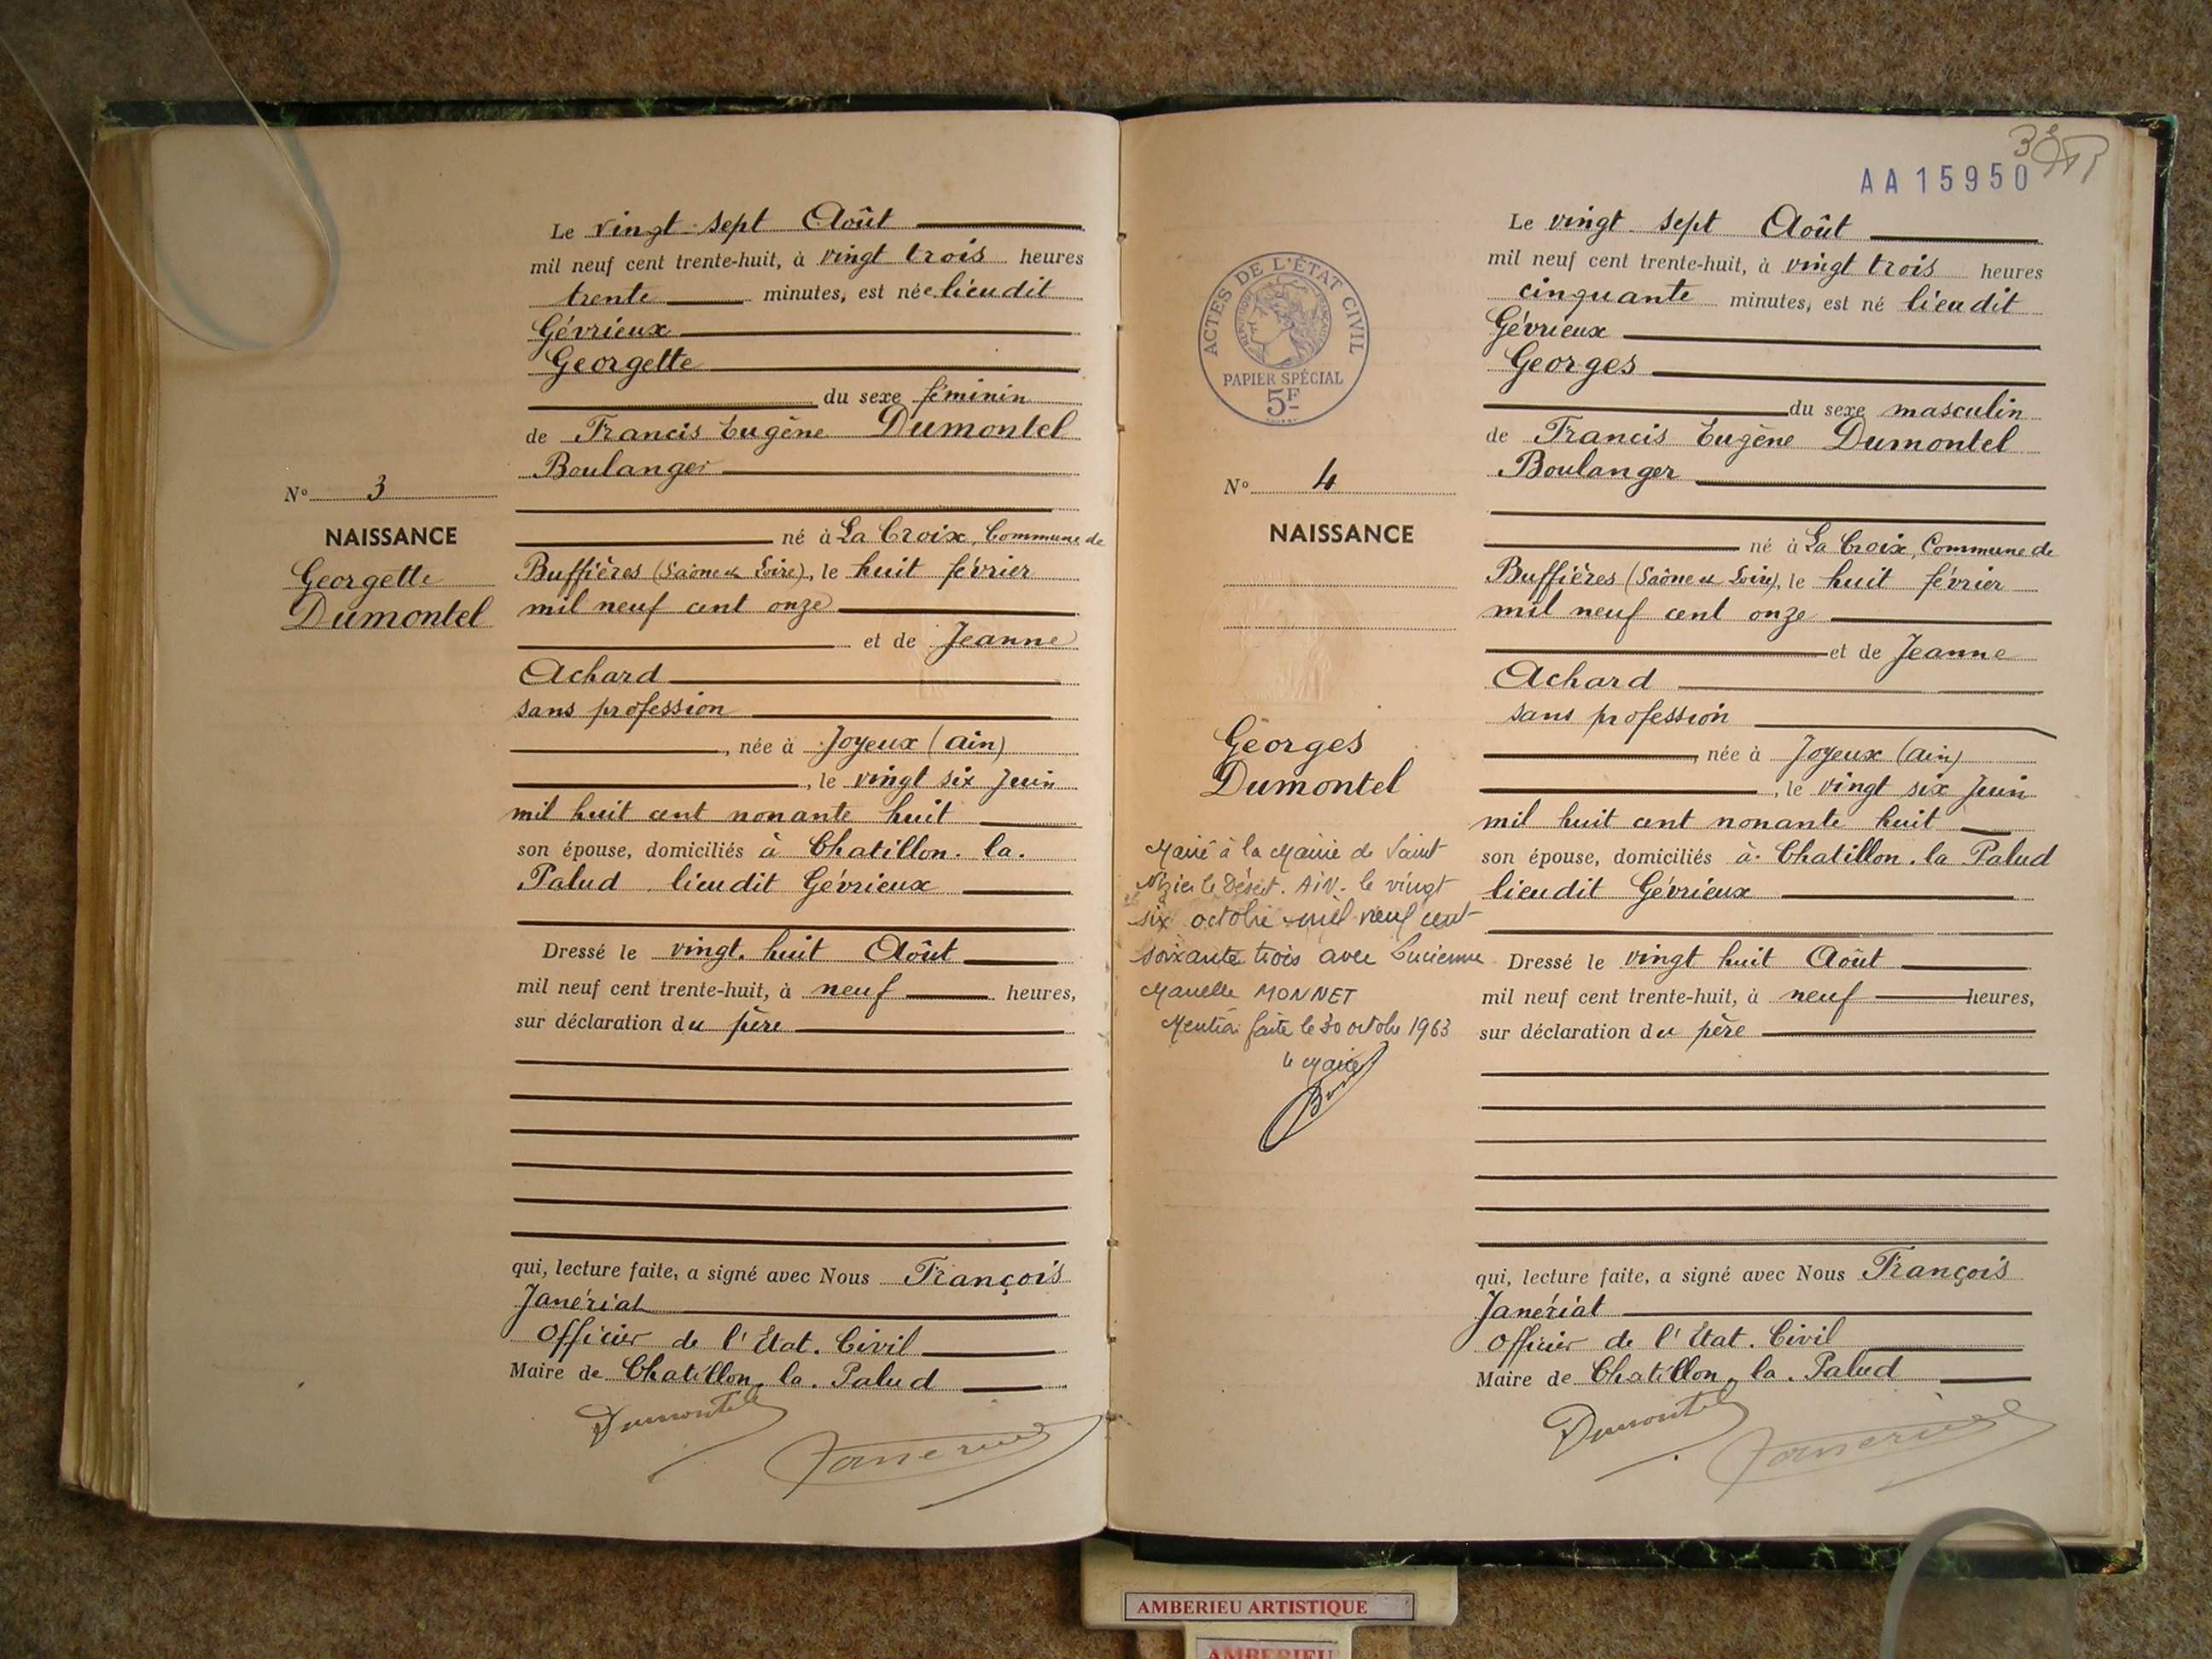 Le vingt-sept Août
mil neuf cent trente-huit, à vingt trois heures
trente minutes, est née lieudit
Gévrieux
Georgette
du sexe féminin
de Francis Eugène Dumontel
Boulanger
N° 3
NAISSANCE
Georgette
Dumontel
né à La Croix, Commune de
Buffières (Saône et Loire), le huit février
mil neuf cent onze
et de Jeanne
Achard
sans profession
, née à Joyeux (Ain)
, le vingt six Juin
mil huit cent nonante huit
son épouse, domiciliés à Chatillon. la.
Palud lieudit Gévrieux
Dressé le vingt. huit Août
mil neuf cent trente-huit, à neuf heures,
sur déclaration du père
qui, lecture faite, a signé avec Nous François
Janériat
Officier de l'Etat. Civil
Maire de Chatillon. la. Palud
Dumontel
Janeriat
AA15950
ACTES DE L'ÉTAT CIVIL
RÉPUBLIQUE FRANÇAISE
PAPIER SPÉCIAL
5F
Le vingt. sept Août
mil neuf cent trente-huit, à vingt trois heures
cinquante minutes, est né lieudit
Gévrieux
Georges
du sexe masculin
de Francis Eugène Dumontel
Boulanger
N° 4
NAISSANCE
Georges
Dumontel
Marié à la Mairie de Saint
Nizier le Désert. AIN. le vingt
six octobre mil neuf cent
soixante trois avec Lucienne
Marcelle MONNET
Mention faite le 30 octobre 1963
le Maire
né à La Croix, Commune de
Buffières (Saône et Loire), le huit février
mil neuf cent onze
et de Jeanne
Achard
sans profession
, née à Joyeux (Ain)
, le vingt six Juin
mil huit cent nonante huit
son épouse, domiciliés à Chatillon. la Palud
lieudit Gévrieux
Dressé le vingt huit Août
mil neuf cent trente-huit, à neuf heures,
sur déclaration du père
qui, lecture faite, a signé avec Nous François
Janériat
Officier de l'Etat. Civil
Maire de Chatillon. la. Palud
Dumontel
Janeriat
AMBERIEU ARTISTIQUE
AMBERIEU